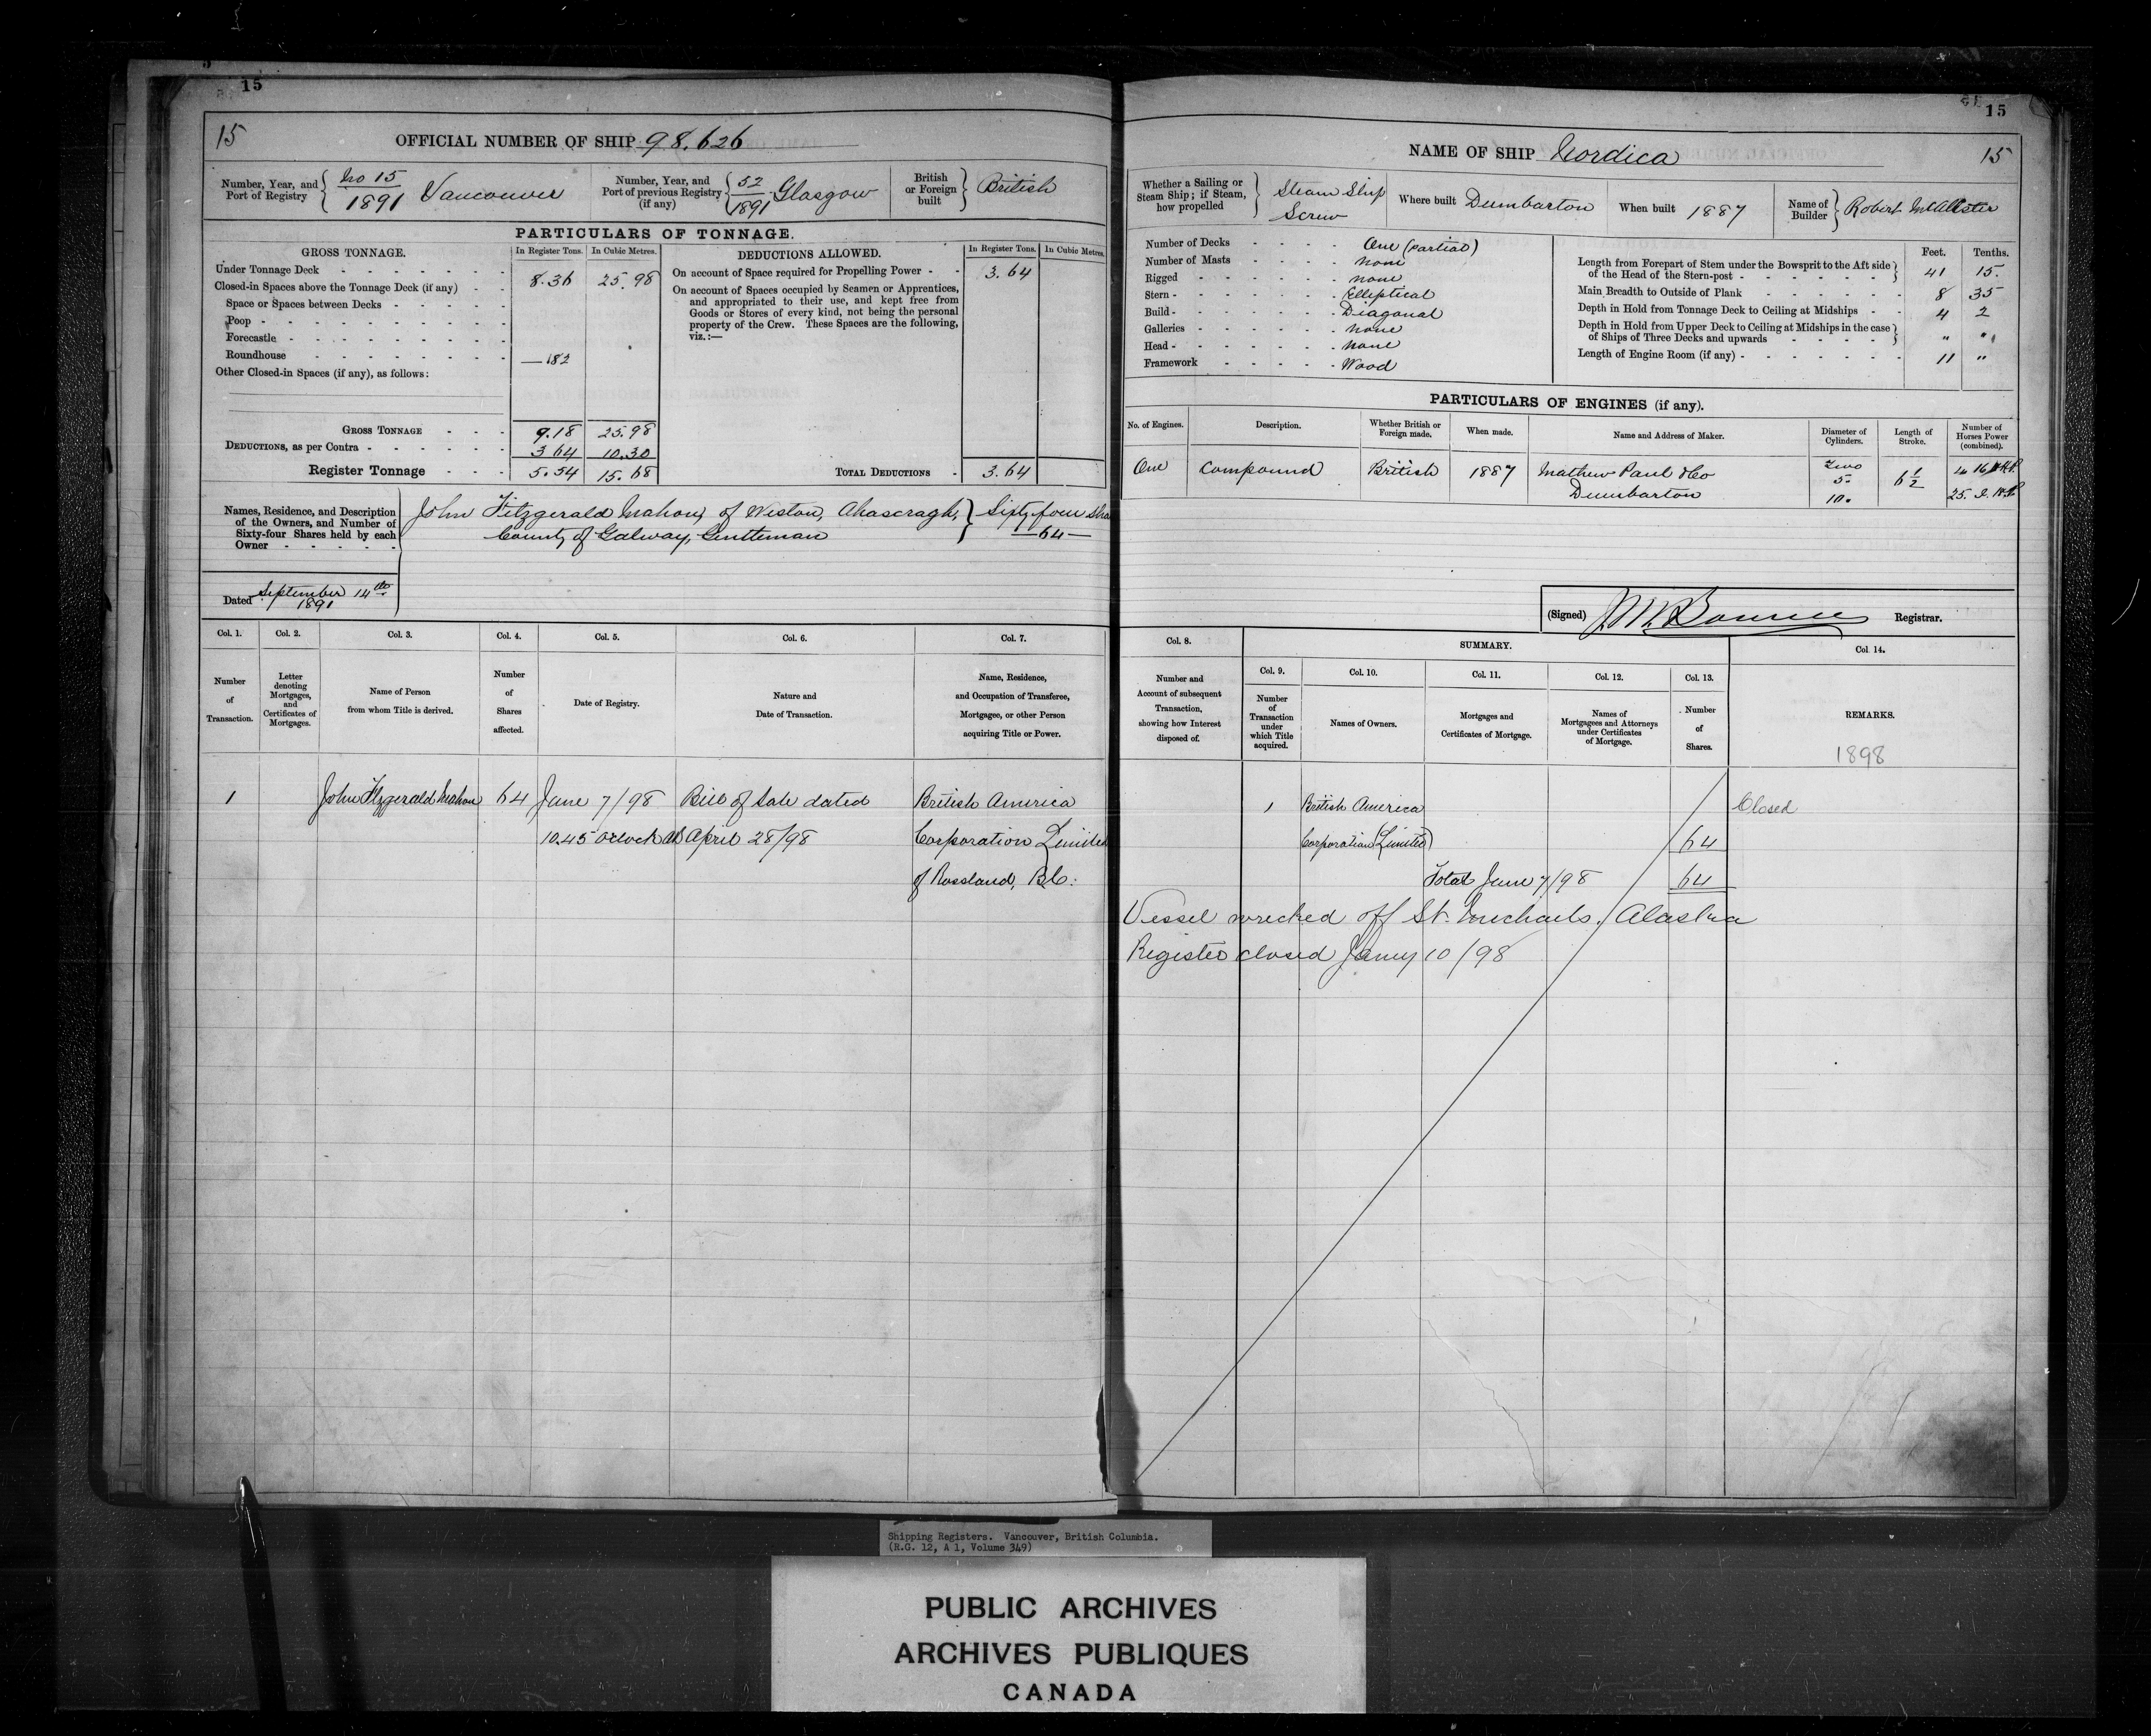 15
15
OFFICIAL NUMBER OF SHIP 98.626
Number, Year, and Port of Registry
No 15
1891 Vancouver
Number, Year, and Port of previous Registry (if any)
52
1891 Glasgow
British or Foreign built
British
PARTICULARS OF TONNAGE.
GROSS TONNAGE. In Register Tons. In Cubic Metres.
Under Tonnage Deck 8.36 25.98
Closed-in Spaces above the Tonnage Deck (if any)
Space or Spaces between Decks
Poop
Forecastle
Roundhouse — 182
Other Closed-in Spaces (if any), as follows:
GROSS TONNAGE 9.18 25.98
DEDUCTIONS, as per Contra 3 64 10.30
Register Tonnage 5.54 15.68
DEDUCTIONS ALLOWED. In Register Tons. In Cubic Metres.
On account of Space required for Propelling Power 3.64
On account of Spaces occupied by Seamen or Apprentices,
and appropriated to their use, and kept free from
Goods or Stores of every kind, not being the personal
property of the Crew. These Spaces are the following,
viz.:—
TOTAL DEDUCTIONS 3.64
Names, Residence, and Description
of the Owners, and Number of
Sixty-four Shares held by each
Owner
John Fitzgerald Mahon, of Weston, Ahascragh, Sixty four Sha
County of Galway, Gentleman — 64 —
Dated September 14th
1891
Col. 1. Col. 2. Col. 3. Col. 4. Col. 5. Col. 6. Col. 7.
Number of Transaction.
Letter denoting Mortgages, and Certificates of Mortgages.
Name of Person from whom Title is derived.
Number of Shares affected.
Date of Registry.
Nature and Date of Transaction.
Name, Residence, and Occupation of Transferee, Mortgagee, or other Person acquiring Title or Power.
1 John Fitzgerald Mahon 64 June 7/98 Bill of Sale dated British America
10.45 o'clock April 28/98 Corporation Limited
of Rossland, B.C.
15
NAME OF SHIP Cordica 15
Whether a Sailing or Steam Ship; if Steam, how propelled
Steam Ship
Screw
Where built Dumbarton
When built 1887
Name of Builder Robert McAlister
Number of Decks One (partial)
Number of Masts None
Rigged None
Stern Elliptical
Build Diagonal
Galleries None
Head None
Framework Wood
Feet. Tenths.
Length from Forepart of Stem under the Bowsprit to the Aft side
of the Head of the Stern-post 41 15.
Main Breadth to Outside of Plank 8 35
Depth in Hold from Tonnage Deck to Ceiling at Midships 4 2
Depth in Hold from Upper Deck to Ceiling at Midships in the case
of Ships of Three Decks and upwards " "
Length of Engine Room (if any) 11 "
PARTICULARS OF ENGINES (if any).
No. of Engines. Description. Whether British or Foreign made. When made. Name and Address of Maker. Diameter of Cylinders. Length of Stroke. Number of Horses Power (combined).
One Compound British 1887 Mathew Paul & Co Two 6 1/2 16 N.H.P.
Dumbarton 5. 25. I.H.P.
10.
(Signed) Registrar.
Col. 8. SUMMARY. Col. 14.
Col. 9. Col. 10. Col. 11. Col. 12. Col. 13.
Number and Account of subsequent Transaction, showing how Interest disposed of.
Number of Transaction under which Title acquired.
Names of Owners.
Mortgages and Certificates of Mortgage.
Names of Mortgagees and Attorneys under Certificates of Mortgage.
Number of Shares.
REMARKS.
1898
1 British America Closed
Corporation (Limited) 64
Total June 7/98 64
Vessel wrecked off St. Michaels, Alaska
Register closed Jany 10/98
Shipping Registers. Vancouver, British Columbia.
(R.G. 12, A 1, Volume 349)
PUBLIC ARCHIVES
ARCHIVES PUBLIQUES
CANADA